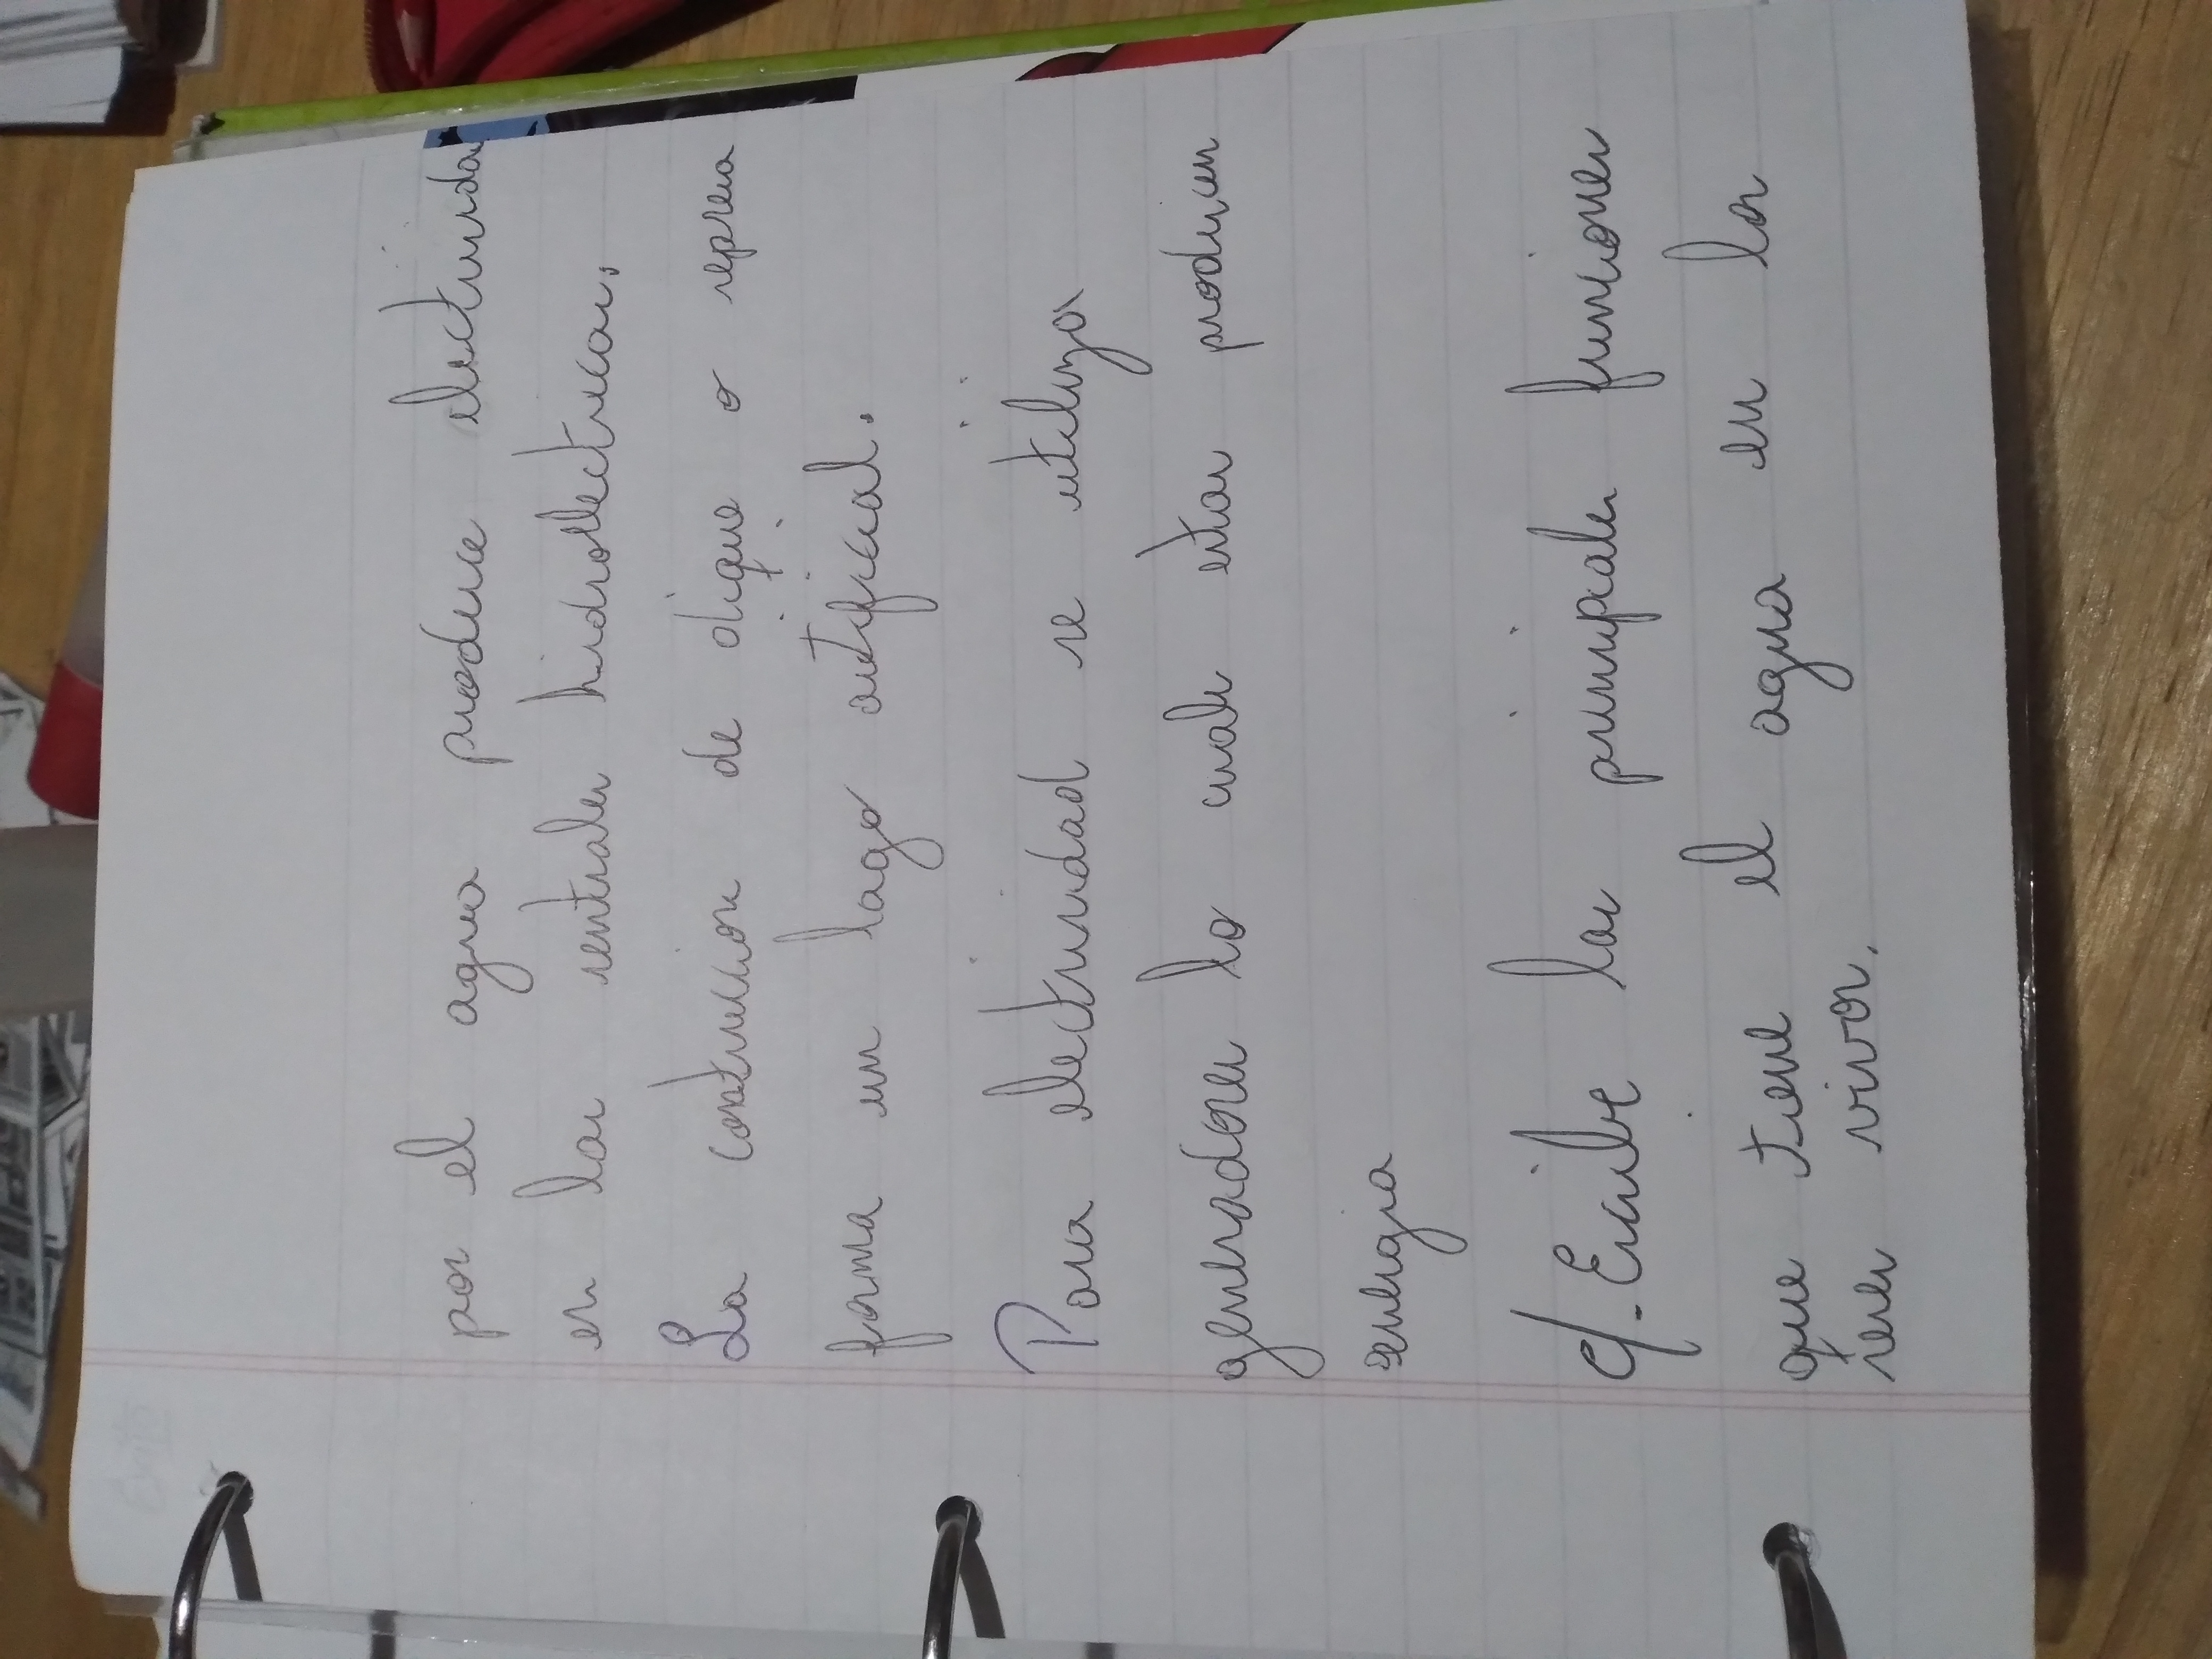 por el agua produce electricida
en las sentrales hidroelectricas.
La costrucion de dique o represa
forma un lago artificial.
Para electricidad se utiliza
generadores lo cuales estas producen
energia
g-Escribe las principales funciones
que tiene el agua en los
seres vivos.